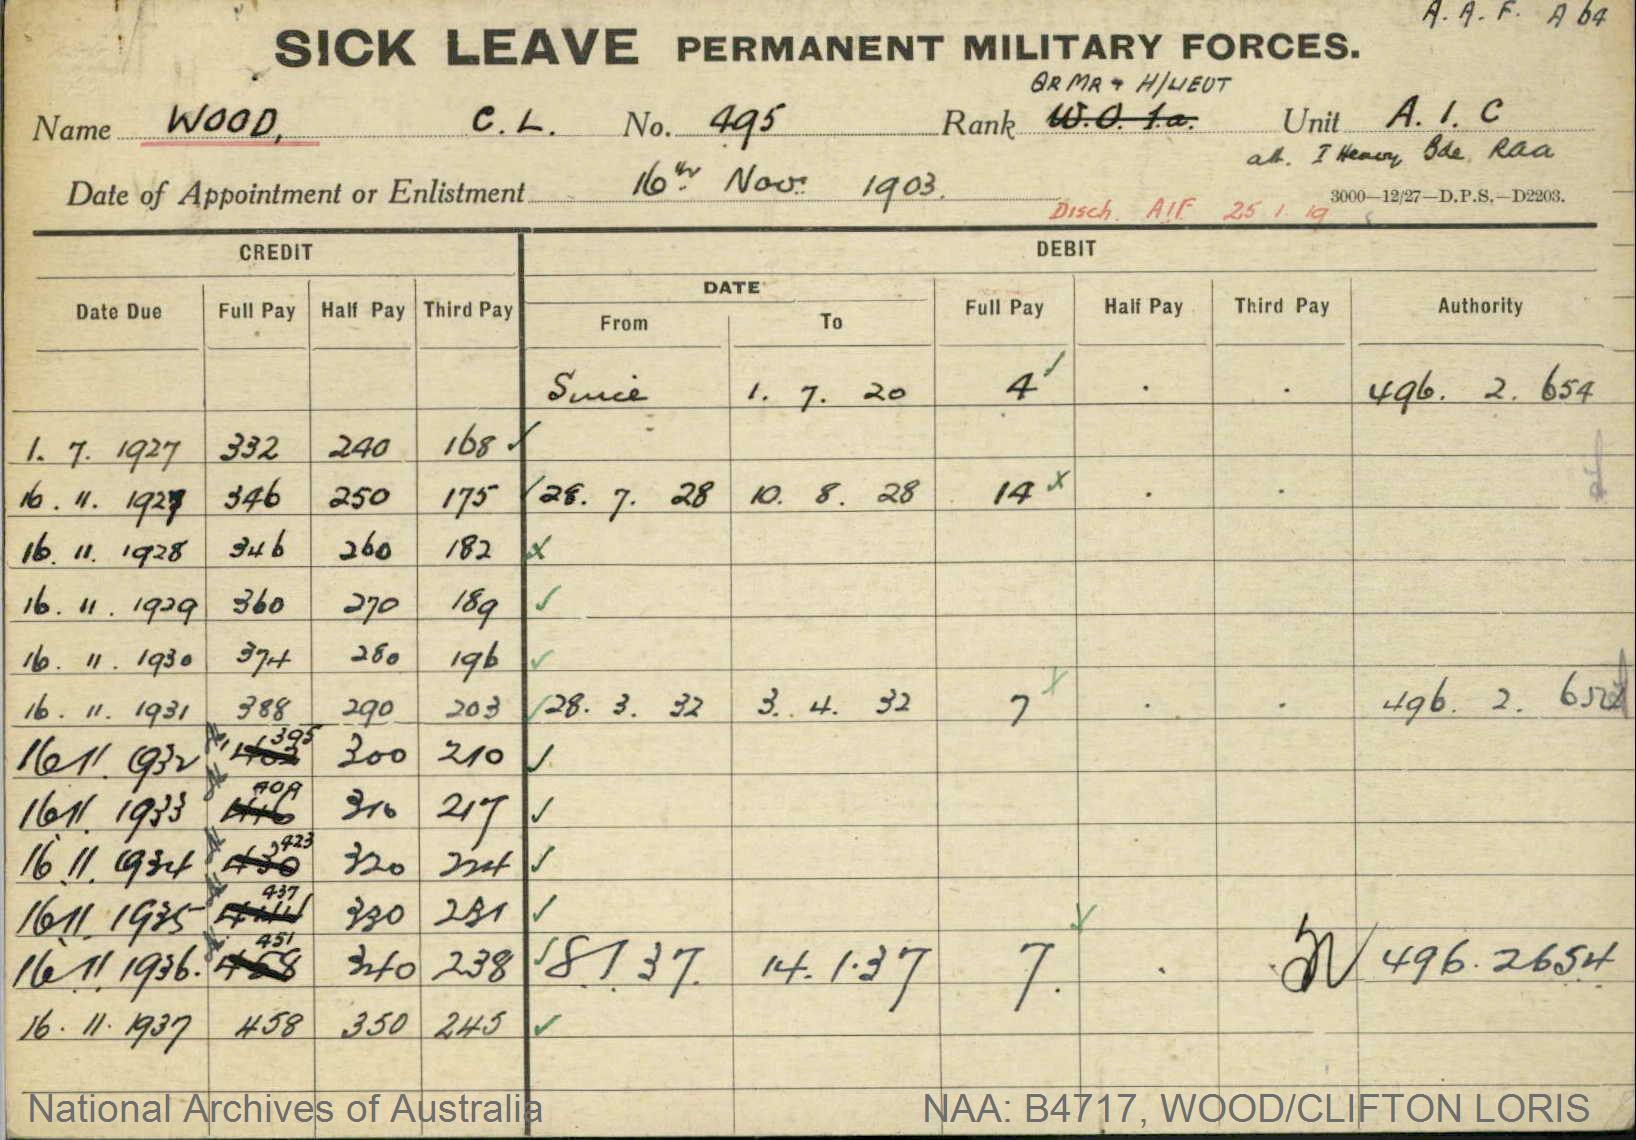 A. A. F. A 64
SICK LEAVE PERMANENT MILITARY FORCES.
QR MR & H/LIEUT
Name WOOD, C. L. No. 495 Rank W.O. 1.a. Unit A. I. C
att. I Heavy Bde RAA
Date of Appointment or Enlistment 16th Nov. 1903. 3000—12/27—D.P.S.—D2203.
Disch. AIF 25 1. 19
CREDIT DEBIT
DATE
Date Due Full Pay Half Pay Third Pay From To Full Pay Half Pay Third Pay Authority
Since 1. 7. 20 4 ✓ . . 496. 2. 654
1. 7. 1927 332 240 168 ✓
16. 11. 1927 346 250 175 ✓ 28. 7. 28 10. 8. 28 14 x . .
16. 11. 1928 346 260 182 x
16. 11. 1929 360 270 189 ✓
16. 11. 1930 374 280 196 ✓
16. 11. 1931 388 290 203 ✓ 28. 3. 32 3. 4. 32 7 x . . 496. 2. 654
395
16 11. 1932 402 300 210 ✓
409
16 11. 1933 416 310 217 ✓
423
16 11. 1934 430 320 224 ✓
437
16 11. 1935 444 330 231 ✓
451
16 11 1936. 458 340 238 ✓ 8. 1. 37. 14. 1. 37 7. . 496. 2654
16. 11. 1937 458 350 245 ✓
National Archives of Australia NAA: B4717, WOOD/CLIFTON LORIS